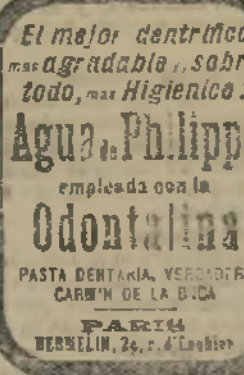 El mejor dentrífico
mas agradable y, sobre
todo, mas Higienico:
Agua de Philipp
empleada con la
Odontalina
PASTA DENTARIA, VERDADERO
CARMIN DE LA BOCA
PARIS
HERMELIN, 24, r. d'Enghien